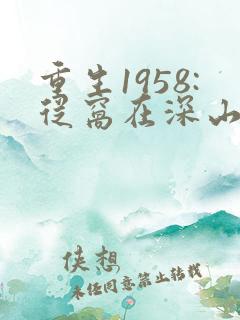 重生1958:
从窝在深山
侠想
未经同意禁止转载